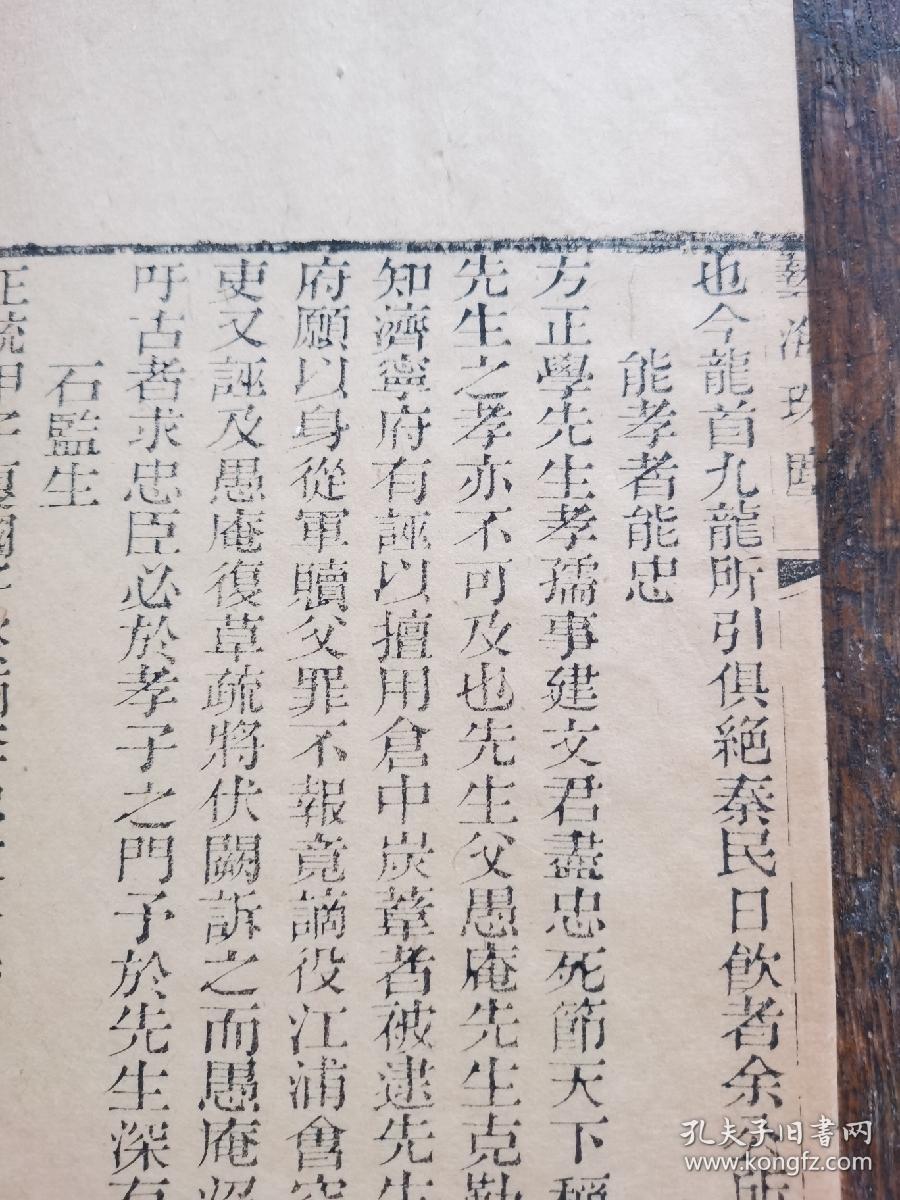 藝海珠
也今龍首九龍所引俱絶秦民日飲者余
能孝者能忠
方正學先生孝孺事建文君盡忠死節天下稱
先生之孝亦不可及也先生父愚庵先生克勤
知濟寧府有誣以擅用倉中炭葦者被逮先生
府願以身從軍贖父罪不報竟謫役江浦會空
吏又誣及愚庵復草疏將伏闕訴之而愚庵
吁古者求忠臣必於孝子之門予於先生深有
石監生
正統甲子
孔夫子旧书网
www.kongfz.com